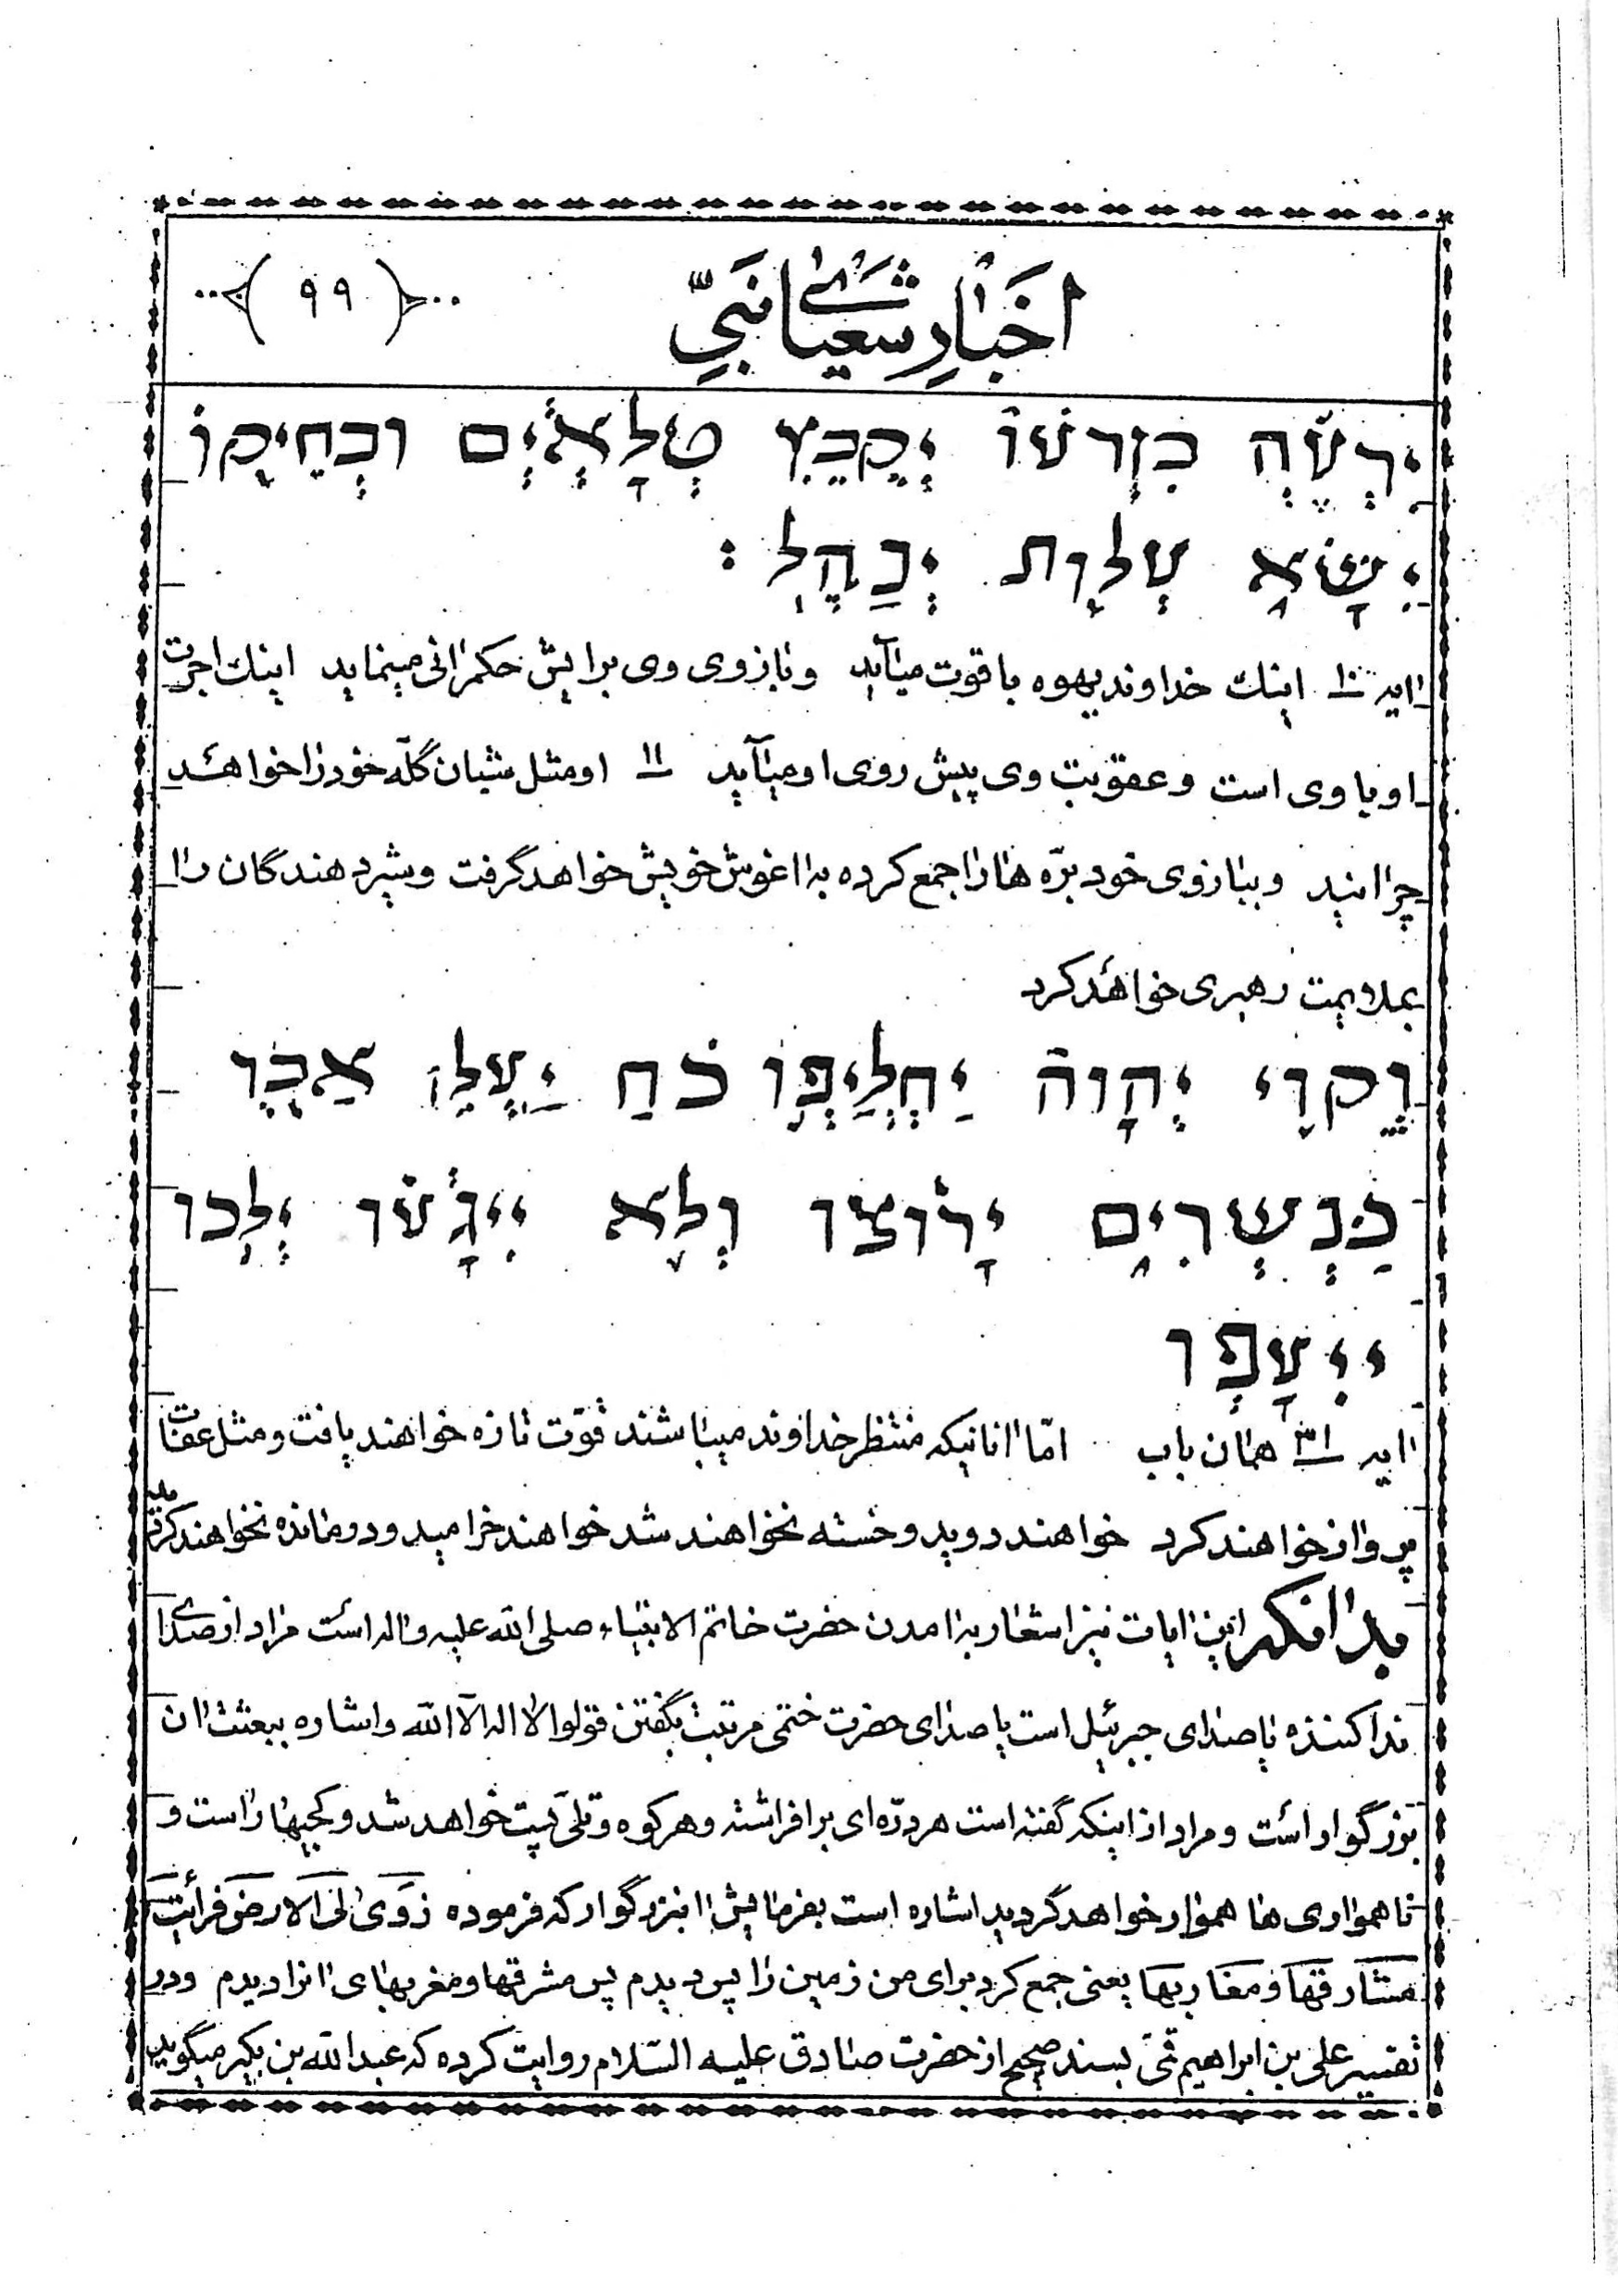 اخبار شعیای نبیّ
(۹۹)
יִרְעֶה בִּזְרֹעוֹ יְקַבֵּץ טְלָאִים וּבְחֵיקוֹ
יִשָּׂא עָלוֹת יְנַהֵל׃
ایه ۱۰ اینك خداوند یهوه با قوت میآید وبازوی وی برایش حکمرانی مینماید اینك اجرت
او با وی است وعقوبت وی پیش روی او میآید ۱۱ او مثل شبان گلّه خود را خواهد
چرانید وببازوی خود برّه ها را جمع کرده به اغوش خویش خواهد گرفت وشیر دهندگان را
بملایمت رهبری خواهد کرد
וְקוֵֹי יְהוָה יַחֲלִיפוּ כֹחַ יַעֲלוּ אֵבֶר
כַּנְּשָׁרִים יָרוּצוּ וְלֹא יִיגָעוּ יֵלְכוּ
יִיעָפוּ
ایه ۳۱ همان باب امّا انانیکه منتظر خداوند میباشند قوّت تازه خواهند یافت ومثل عقاب
پرواز خواهند کرد خواهند دوید وخسته نخواهند شد خواهند خرامید ودرمانده نخواهند گردید
بدانکه این ایات نیز اشعار به امدن حضرت خاتم الانبیاء صلی الله علیه واله است مراد از صدای
ندا کننده یا صدای جبرئیل است یا صدای حضرت ختمی مرتبت بگفتن قولوا لا اله الّا الله واشاره ببعثت ان
بزرگوار است ومراد از اینکه گفته است هر درّه ای برافراشته وهر کوه وتلی پست خواهد شد وکجیها راست و
ناهمواری ها هموار خواهد گردید اشاره است بفرمایش ان بزرگوار که فرموده زوی لی الارض فرأیت
مشارقها ومغاربها یعنی جمع کرد برای من زمین را پس دیدم پس مشرقها ومغربهای انرا دیدم ودر
تفسیر علی بن ابراهیم قمی بسند صحیح از حضرت صادق علیه السّلام روایت کرده که عبدالله بن بکیر میگوید